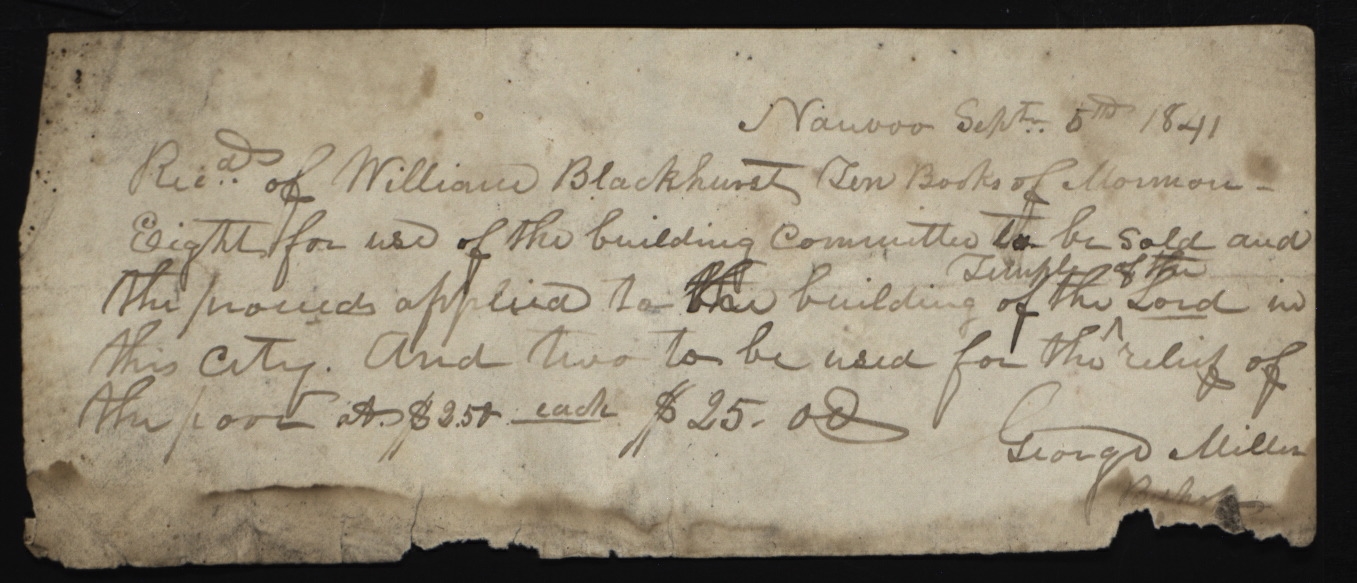 Nauvoo Septr. 5th 1841
Recd. of William Blackhurst Ten Books of Mormon -
Eight for use of the building Committee to be sold and
the proceeds applied to the building of the Temple of the Lord in
this City. And two to be used for the relief of
the poor at $2.50 each $25.00
George Miller
Bishop